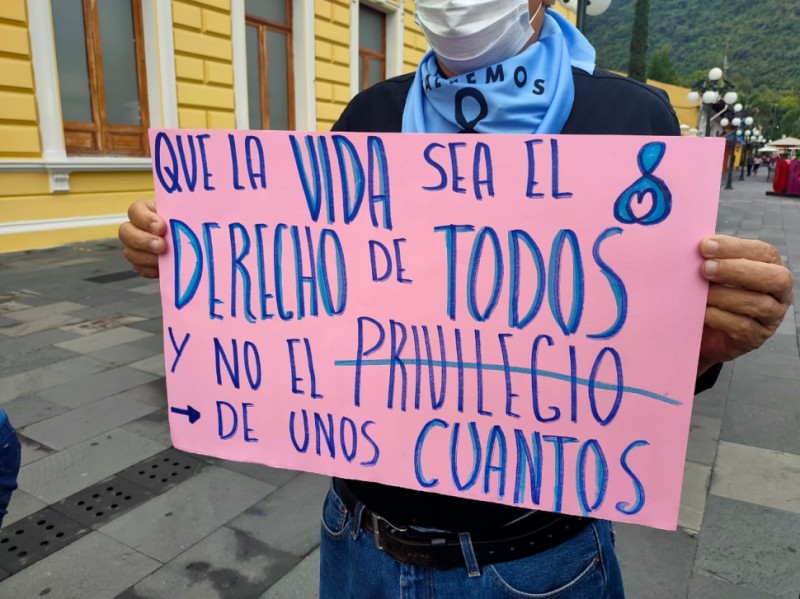 REMOS
QUE LA VIDA SEA EL
DERECHO DE TODOS
Y NO EL PRIVILEGIO
→ DE UNOS CUANTOS